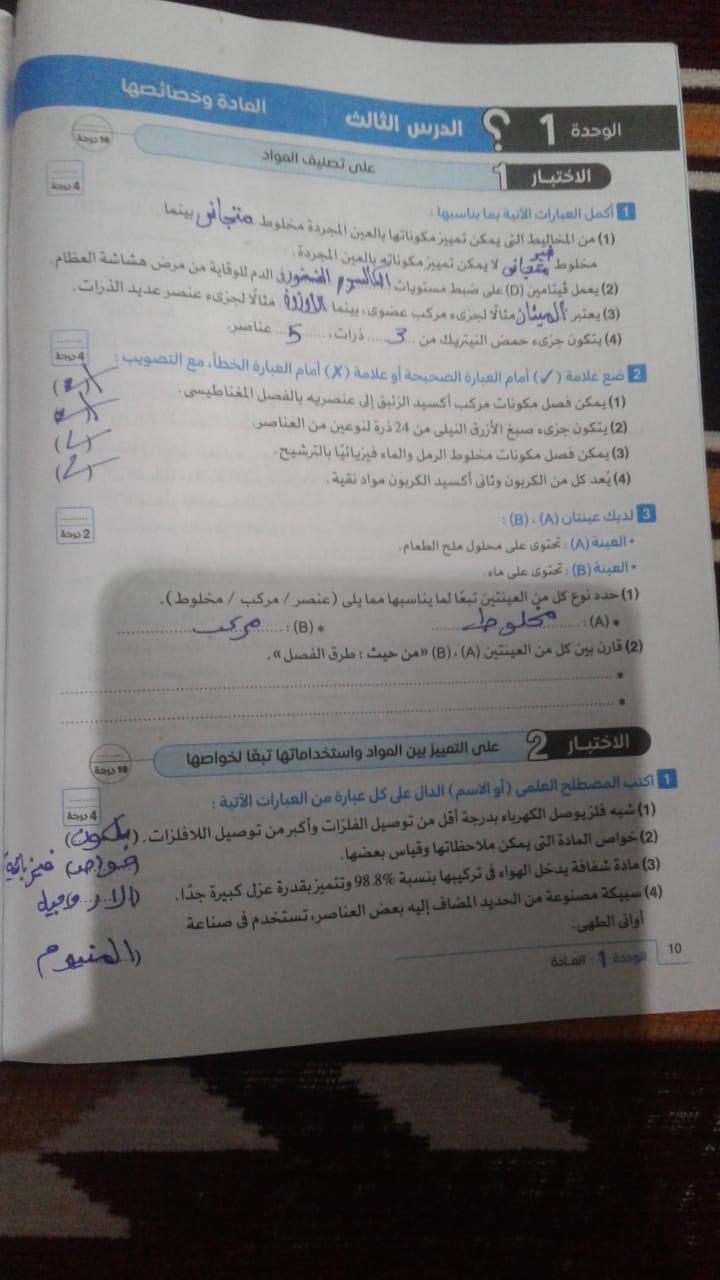 الوحدة 1 ؟ الدرس الثالث | المادة وخصائصها
الاختبار 1 على تصنيف المواد
10 درجة
1 أكمل العبارات الآتية بما يناسبها :
4 درجة
(1) من المخاليط التى يمكن تمييز مكوناتها بالعين المجردة مخلوط متجانس بينما
مخلوط غير متجانس لا يمكن تمييز مكوناته بالعين المجردة.
(2) يعمل ڤيتامين (D) على ضبط مستويات الكالسيوم الفسفور فى الدم للوقاية من مرض هشاشة العظام.
(3) يعتبر الميثان مثالًا لجزىء مركب عضوى، بينما الأوزون مثالًا لجزىء عنصر عديد الذرات.
(4) يتكون جزىء حمض النيتريك من 3 ذرات، 5 عناصر.
2 ضع علامة (✓) أمام العبارة الصحيحة أو علامة (✗) أمام العبارة الخطأ، مع التصويب :
4 درجة
(1) يمكن فصل مكونات مركب أكسيد الزئبق إلى عنصريه بالفصل المغناطيسى.
(2) يتكون جزىء صبغ الأزرق النيلى من 24 ذرة لنوعين من العناصر.
(3) يمكن فصل مكونات مخلوط الرمل والماء فيزيائيًا بالترشيح.
(4) يُعد كل من الكربون وثانى أكسيد الكربون مواد نقية.
3 لديك عينتان (A) ، (B) :
2 درجة
• العينة (A) : تحتوى على محلول ملح الطعام.
• العينة (B) : تحتوى على ماء.
(1) حدد نوع كل من العينتين تبعًا لما يناسبها مما يلى (عنصر / مركب / مخلوط).
* (A) : مخلوط * (B) : مركب
(2) قارن بين كل من العينتين (A) ، (B) «من حيث : طرق الفصل».
*
*
الاختبار 2 على التمييز بين المواد واستخداماتها تبعًا لخواصها
10 درجة
1 اكتب المصطلح العلمى (أو الاسم) الدال على كل عبارة من العبارات الآتية :
4 درجة
(1) شبه فلز يوصل الكهرباء بدرجة أقل من توصيل الفلزات وأكبر من توصيل اللافلزات.
(2) خواص المادة التى يمكن ملاحظاتها وقياس بعضها. (خواص فيزيائية
(3) مادة شفافة يدخل الهواء فى تركيبها بنسبة 98.8% وتتميز بقدرة عزل كبيرة جدًا.
(4) سبيكة مصنوعة من الحديد المضاف إليه بعض العناصر، تستخدم فى صناعة
أوانى الطهى.
10 الوحدة 1 : المادة